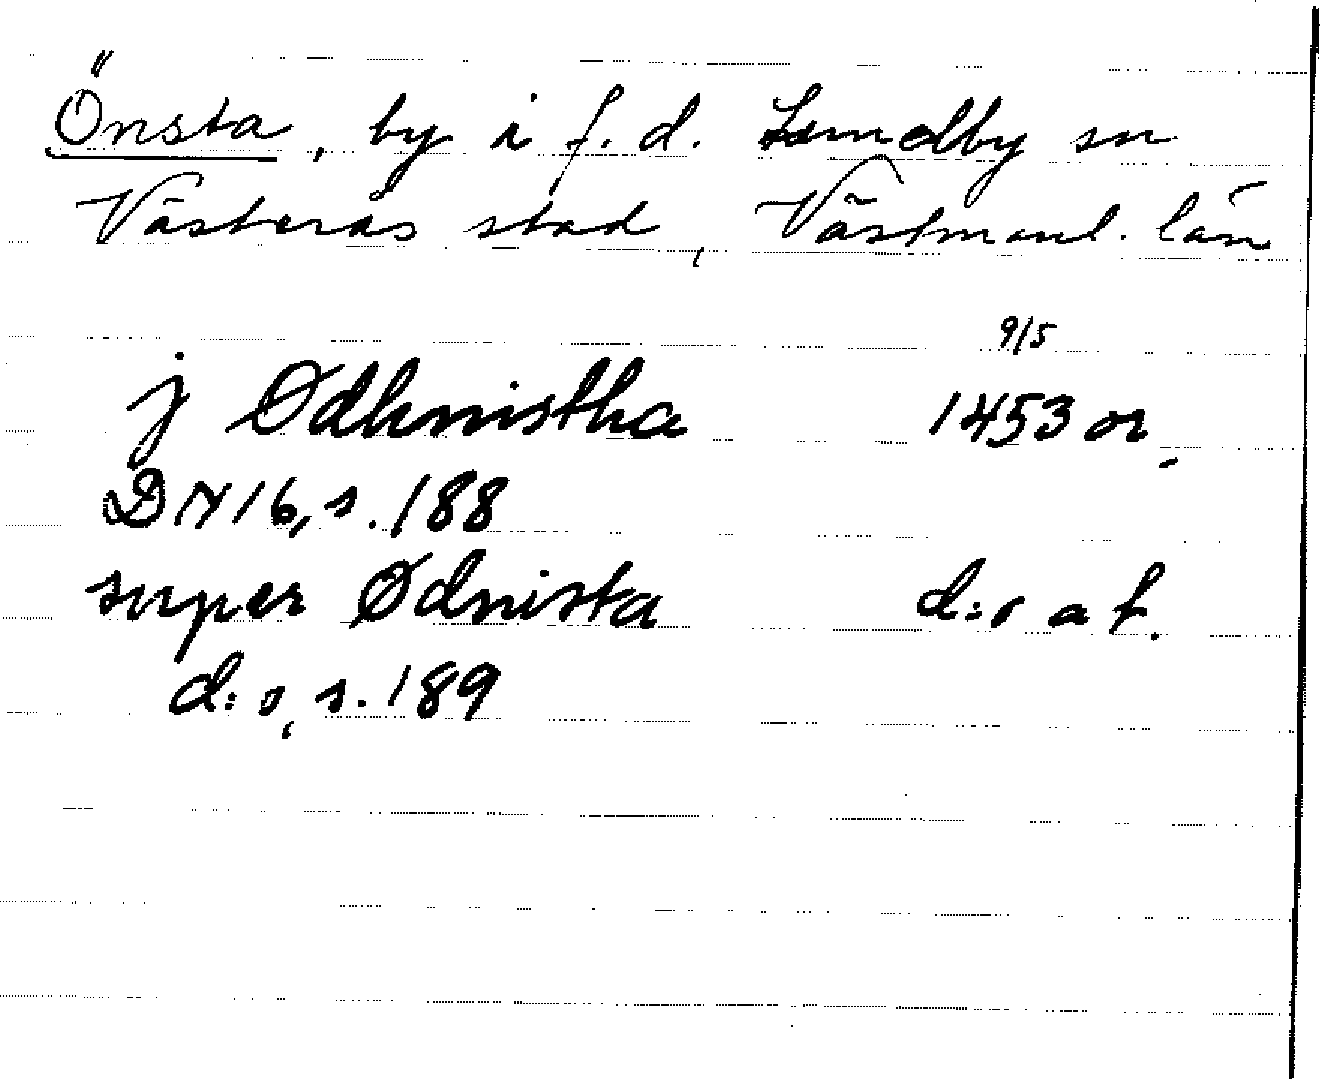 Önsta, by i f. d. Lundby sn
Västerås stad, Västmanl. län
9/5
j Ødhnistha 1453 or.
DN 16, s. 188
super Ødnista d:o a f.
d:o, s. 189